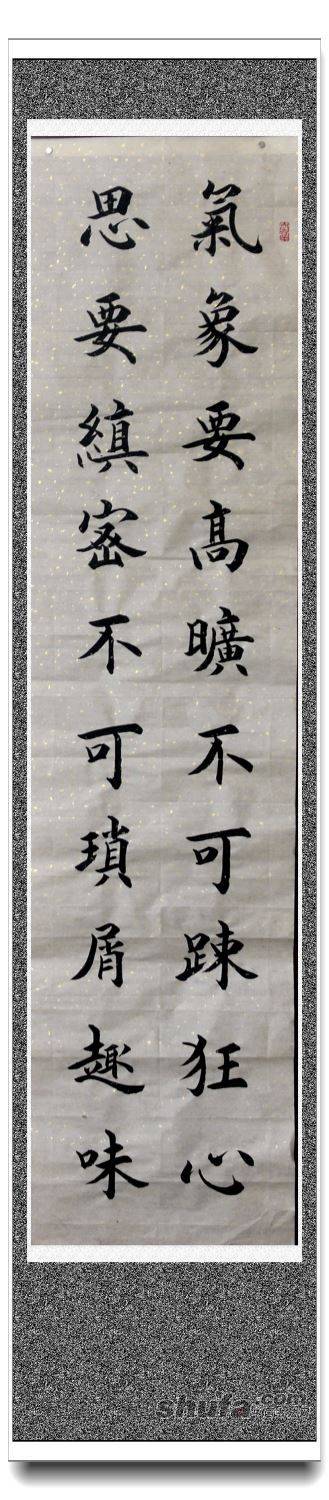 氣象要高曠不可踈狂心
思要縝密不可瑣屑趣味
shufa.com